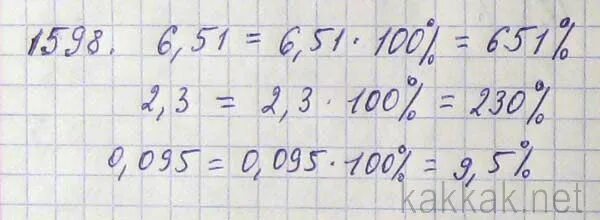 1598. 6,51 = 6,51 · 100% = 651%
2,3 = 2,3 · 100% = 230%
0,095 = 0,095 · 100% = 9,5%
kakkak.net